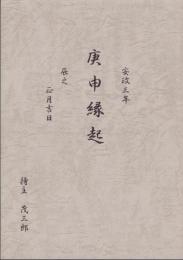 安政三年
庚申縁起
辰之
正月吉日
持主 茂三郎